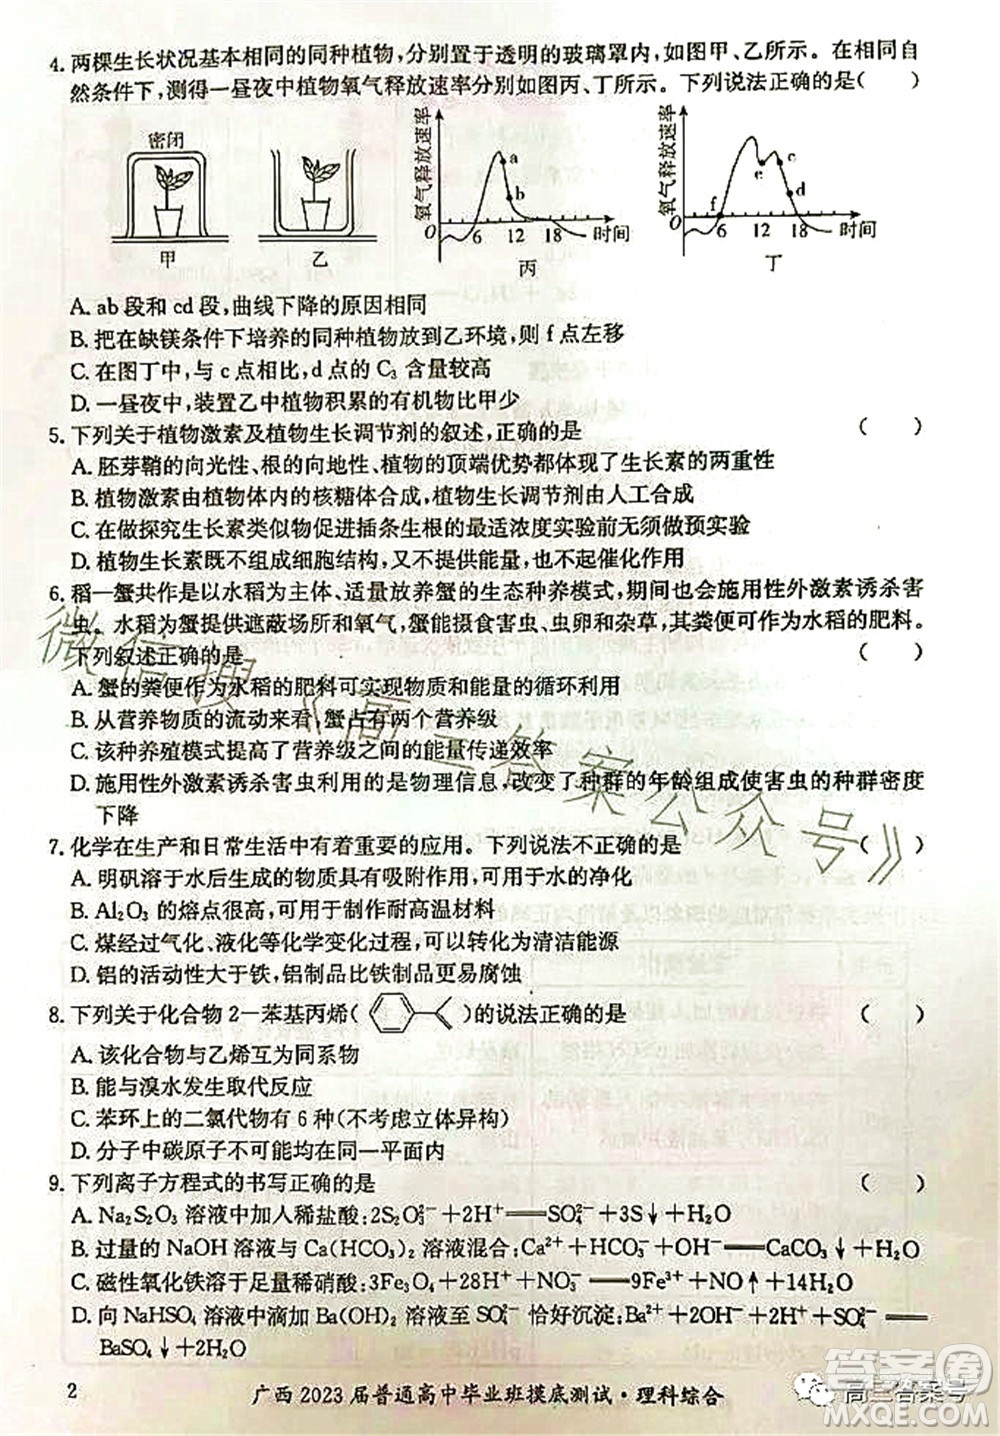 4. 两棵生长状况基本相同的同种植物,分别置于透明的玻璃罩内,如图甲、乙所示。在相同自
然条件下,测得一昼夜中植物氧气释放速率分别如图丙、丁所示。下列说法正确的是(　　)
密闭
甲
乙
氧气释放速率
a
b
O
6
12
18
时间
丙
氧气释放速率
f
e
c
d
O
6
12
18
时间
丁
A. ab段和cd段,曲线下降的原因相同
B. 把在缺镁条件下培养的同种植物放到乙环境,则f点左移
C. 在图丁中,与c点相比,d点的C₃含量较高
D. 一昼夜中,装置乙中植物积累的有机物比甲少
5. 下列关于植物激素及植物生长调节剂的叙述,正确的是 (　　)
A. 胚芽鞘的向光性、根的向地性、植物的顶端优势都体现了生长素的两重性
B. 植物激素由植物体内的核糖体合成,植物生长调节剂由人工合成
C. 在做探究生长素类似物促进插条生根的最适浓度实验前无须做预实验
D. 植物生长素既不组成细胞结构,也不起催化作用
6. 稻—蟹共作是以水稻为主体、适量放养蟹的生态种养模式,期间也会施用性外激素诱杀害
虫。水稻为蟹提供遮蔽场所和氧气,蟹能摄食害虫、虫卵和杂草,其粪便可作为水稻的肥料。
下列叙述正确的是 (　　)
A. 蟹的粪便作为水稻的肥料可实现物质和能量的循环利用
B. 从营养物质的流动来看,蟹占有两个营养级
C. 该种养殖模式提高了营养级之间的能量传递效率
D. 施用性外激素诱杀害虫利用的是物理信息,改变了种群的年龄组成使害虫的种群密度
下降
7. 化学在生产和日常生活中有着重要的应用。下列说法不正确的是 (　　)
A. 明矾溶于水后生成的物质具有吸附作用,可用于水的净化
B. Al₂O₃的熔点很高,可用于制作耐高温材料
C. 煤经过气化、液化等化学变化过程,可以转化为清洁能源
D. 铝的活动性大于铁,铝制品比铁制品更易腐蚀
8. 下列关于化合物2—苯基丙烯( )的说法正确的是 (　　)
A. 该化合物与乙烯互为同系物
B. 能与溴水发生取代反应
C. 苯环上的二氯代物有6种(不考虑立体异构)
D. 分子中碳原子不可能均在同一平面内
9. 下列离子方程式的书写正确的是 (　　)
A. Na₂S₂O₃溶液中加人稀盐酸:2S₂O₃²⁻+2H⁺══SO₄²⁻+3S↓+H₂O
B. 过量的NaOH溶液与Ca(HCO₃)₂溶液混合:Ca²⁺+HCO₃⁻+OH⁻══CaCO₃↓+H₂O
C. 磁性氧化铁溶于足量稀硝酸:3Fe₃O₄+28H⁺+NO₃⁻══9Fe³⁺+NO↑+14H₂O
D. 向NaHSO₄溶液中滴加Ba(OH)₂溶液至SO₄²⁻恰好沉淀:Ba²⁺+2OH⁻+2H⁺+SO₄²⁻══
BaSO₄↓+2H₂O
2
广西2023届普通高中毕业班摸底测试·理科综合
微信搜《高三答案公众号》
高三答案号
答案圈
MXQE.COM